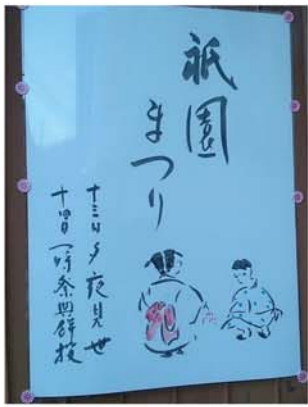 祇園
まつり
十三日夕夜見世
十四日一時祭典餅投